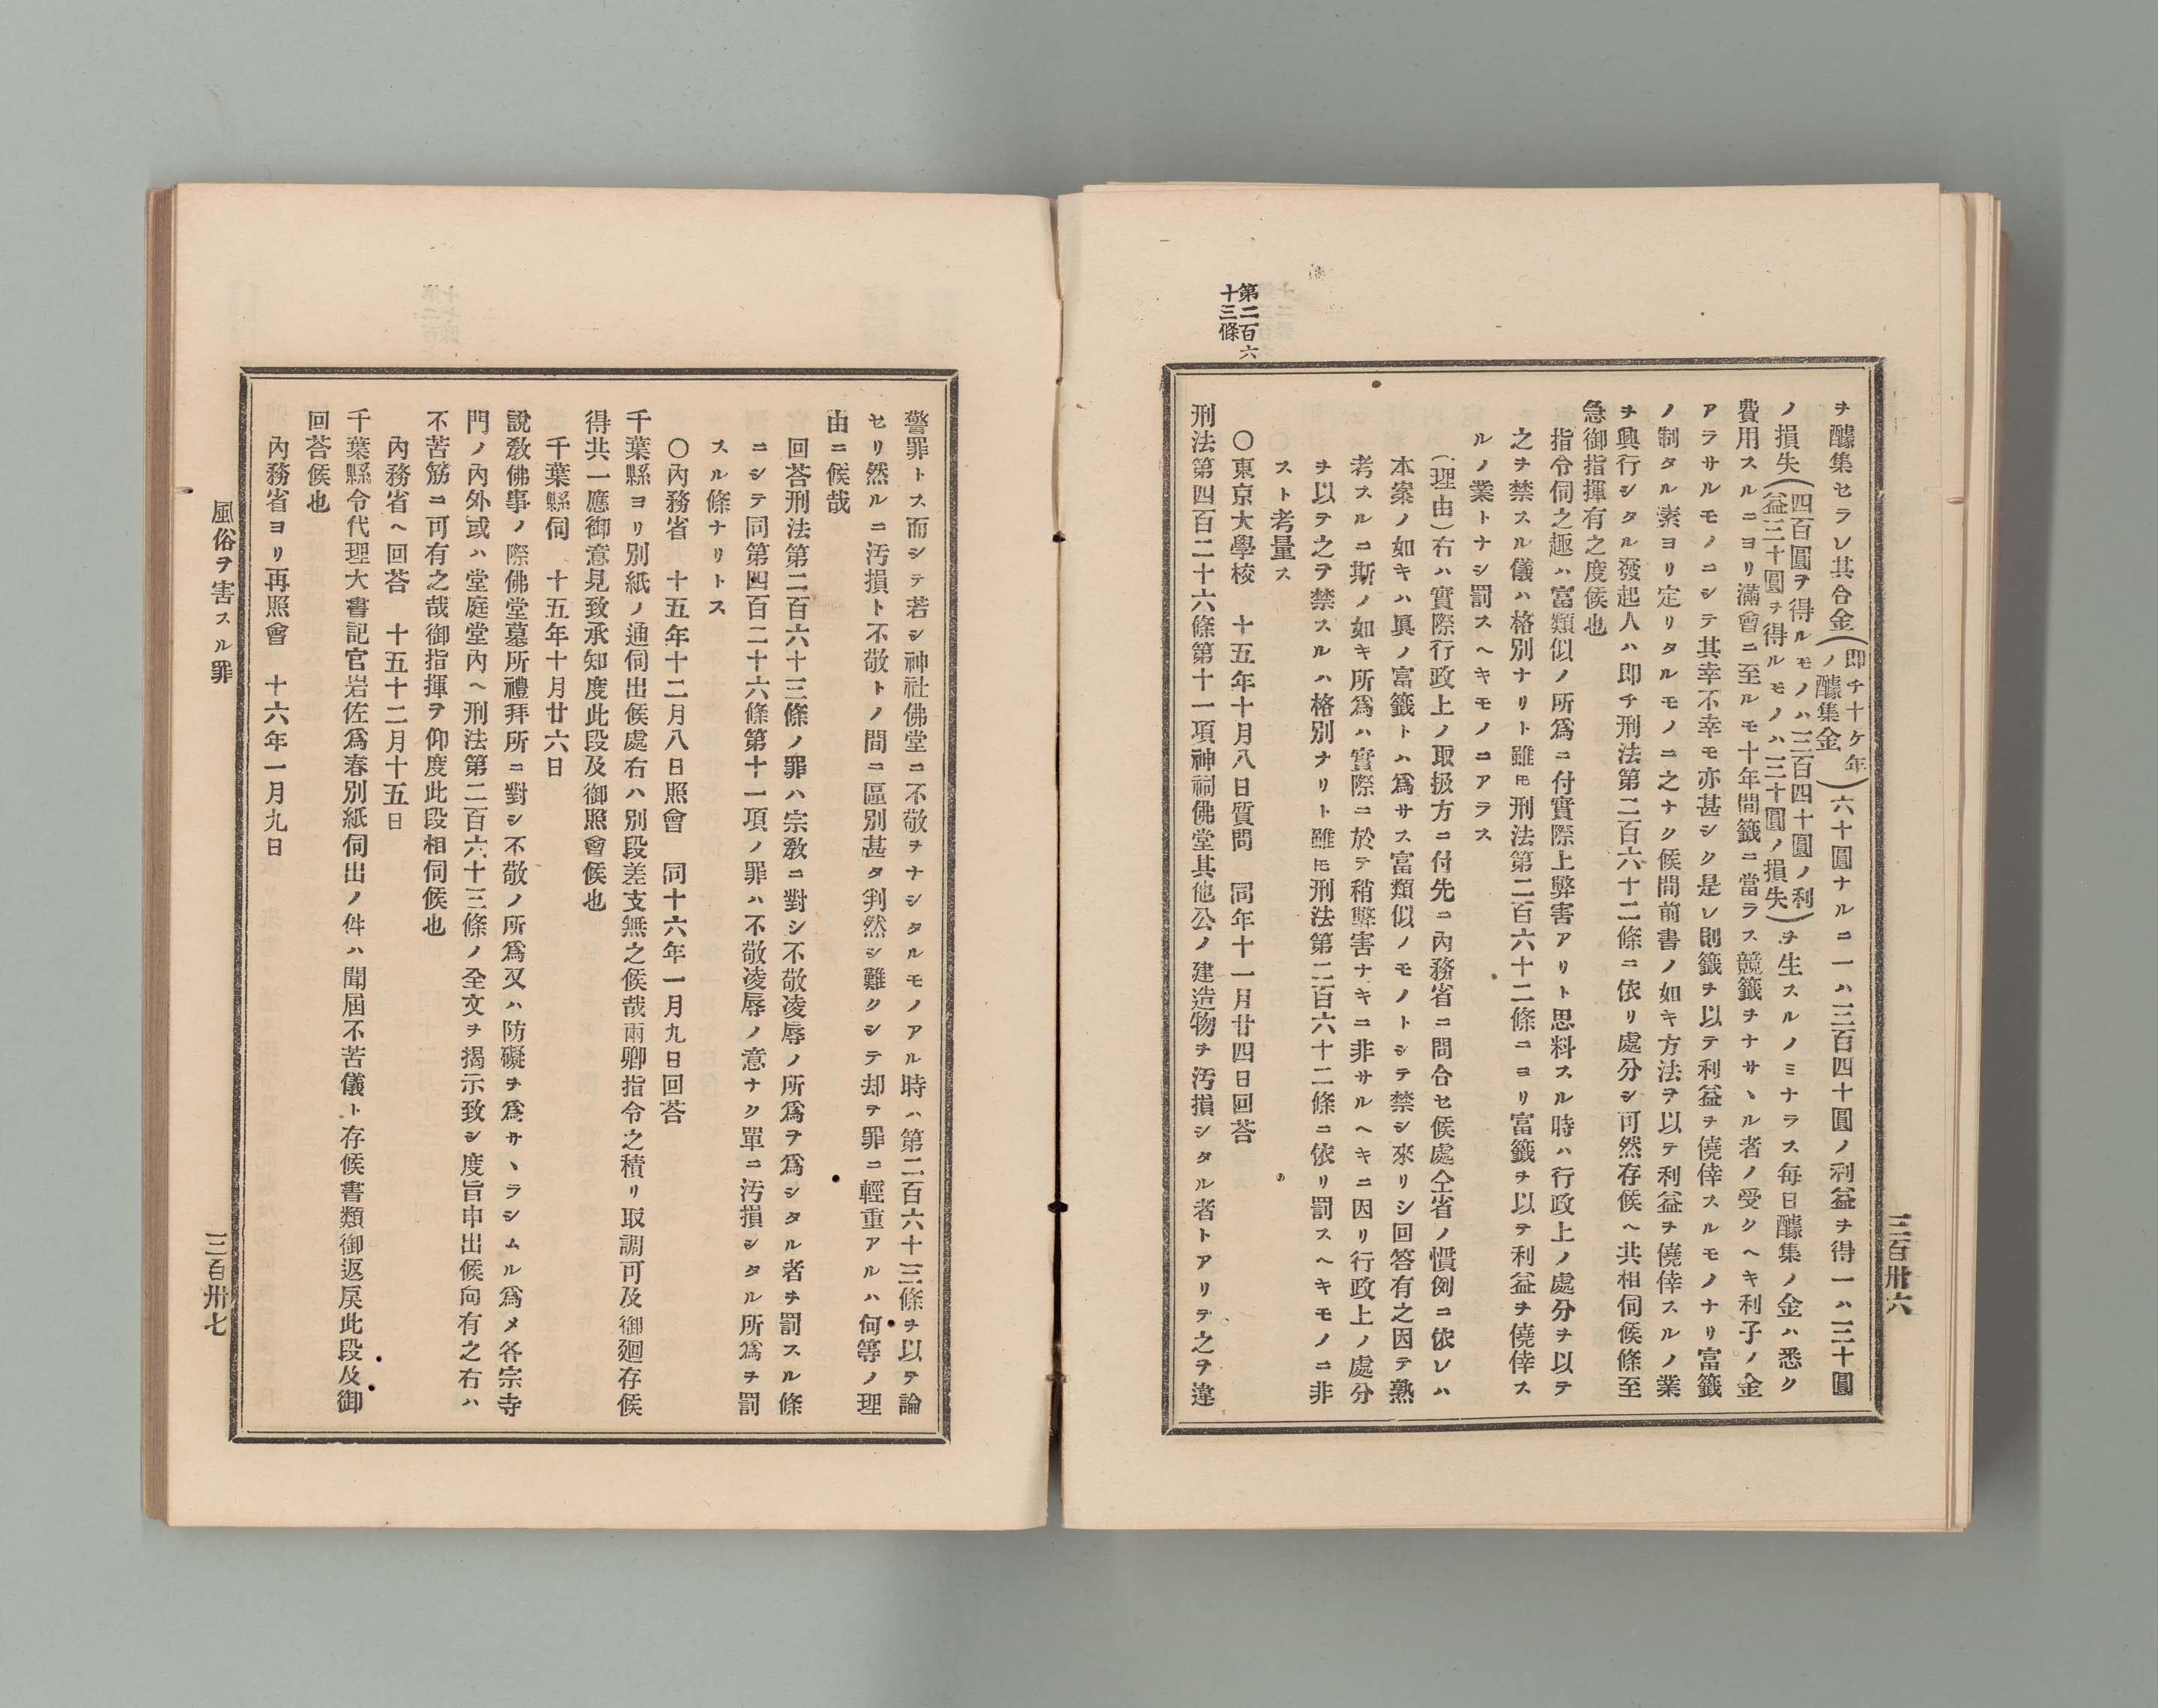 三百卅六
ヲ醵集セラレ其合金(即チ十ケ年ノ醵集金)六十圓ナルニ一ハ三百四十圓ノ利益ヲ得一ハ三十圓
ノ損失(四百圓ヲ得ルモノハ三百四十圓ノ利益三十圓ヲ得ルモノハ三十圓ノ損失)ヲ生スルノミナラス毎日醵集ノ金ハ悉ク
費用スルニヨリ滿會ニ至ルモ十年間籤ニ當ラス競籤ヲナサヽル者ノ受クヘキ利子ノ金
アラサルモノニシテ其幸不幸モ亦甚シク是レ則籤ヲ以テ利益ヲ僥倖スルモノナリ富籤
ノ制タル素ヨリ定リタルモノニ之ナク候間前書ノ如キ方法ヲ以テ利益ヲ僥倖スルノ業
ヲ興行シタル發起人ハ即チ刑法第二百六十二條ニ依リ處分シ可然存候ヘ共相伺候條至
急御指揮有之度候也
指令伺之趣ハ富類似ノ所爲ニ付實際上弊害アリト思料スル時ハ行政上ノ處分ヲ以テ
之ヲ禁スル儀ハ格別ナリト雖モ刑法第二百六十二條ニヨリ富籤ヲ以テ利益ヲ僥倖ス
ルノ業トナシ罰スヘキモノニアラス
(理由)右ハ實際行政上ノ取扱方ニ付先ニ內務省ニ問合セ候處仝省ノ慣例ニ依レハ
本案ノ如キハ眞ノ富籤トハ爲サス富類似ノモノトシテ禁シ來リシ回答有之因テ熟
考スルニ斯ノ如キ所爲ハ實際ニ於テ稍弊害ナキニ非サルヘキニ因リ行政上ノ處分
ヲ以テ之ヲ禁スルハ格別ナリト雖モ刑法第二百六十二條ニ依リ罰スヘキモノニ非
スト考量ス
第二百六
十三條
○東京大學校　十五年十月八日質問　同年十一月廿四日回荅
刑法第四百二十六條第十一項神祠佛堂其他公ノ建造物ヲ汚損シタル者トアリテ之ヲ違
警罪トス而シテ若シ神社佛堂ニ不敬ヲナシタルモノアル時ハ第二百六十三條ヲ以テ論
セリ然ルニ汚損ト不敬トノ間ニ區別甚タ判然シ難クシテ却テ罪ニ輕重アルハ何等ノ理
由ニ候哉
回荅刑法第二百六十三條ノ罪ハ宗敎ニ對シ不敬凌辱ノ所爲ヲ爲シタル者ヲ罰スル條
ニシテ同第四百二十六條第十一項ノ罪ハ不敬凌辱ノ意ナク單ニ汚損シタル所爲ヲ罰
スル條ナリトス
○內務省　十五年十二月八日照會　同十六年一月九日回荅
千葉縣ヨリ別紙ノ通伺出候處右ハ別段差支無之候哉兩卿指令之積リ取調可及御廻存候
得共一應御意見致承知度此段及御照會候也
千葉縣伺　十五年十月廿六日
說敎佛事ノ際佛堂墓所禮拜所ニ對シ不敬ノ所爲又ハ防礙ヲ爲サヽラシムル爲メ各宗寺
門ノ內外或ハ堂庭堂內ヘ刑法第二百六十三條ノ全文ヲ揭示致シ度旨申出候向有之右ハ
不苦筋ニ可有之哉御指揮ヲ仰度此段相伺候也
內務省ヘ回荅　十五十二月十五日
千葉縣令代理大書記官岩佐爲春別紙伺出ノ件ハ聞屆不苦儀ト存候書類御返戾此段及御
回荅候也
內務省ヨリ再照會　十六年一月九日
風俗ヲ害スル罪
三百卅七